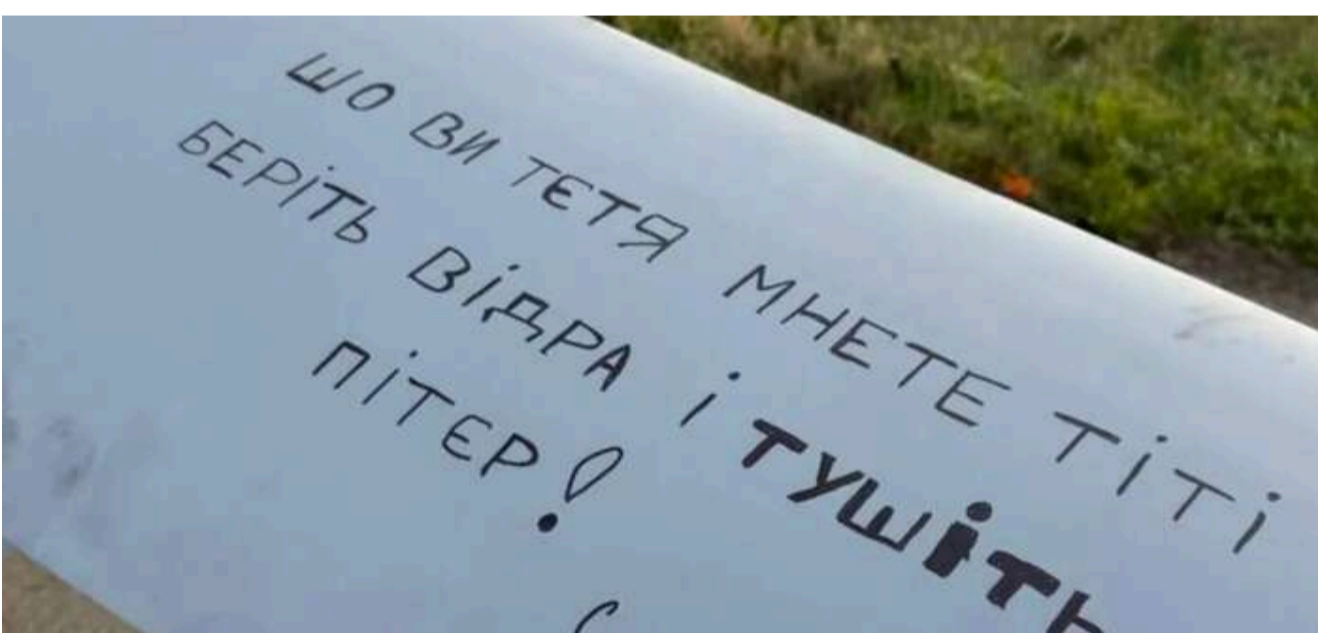 ШО ВИ ТЄТЯ МНЕТЕ ТІТІ
БЕРІТЬ ВІДРА І ТУШІТЬ
ПІТЄР!